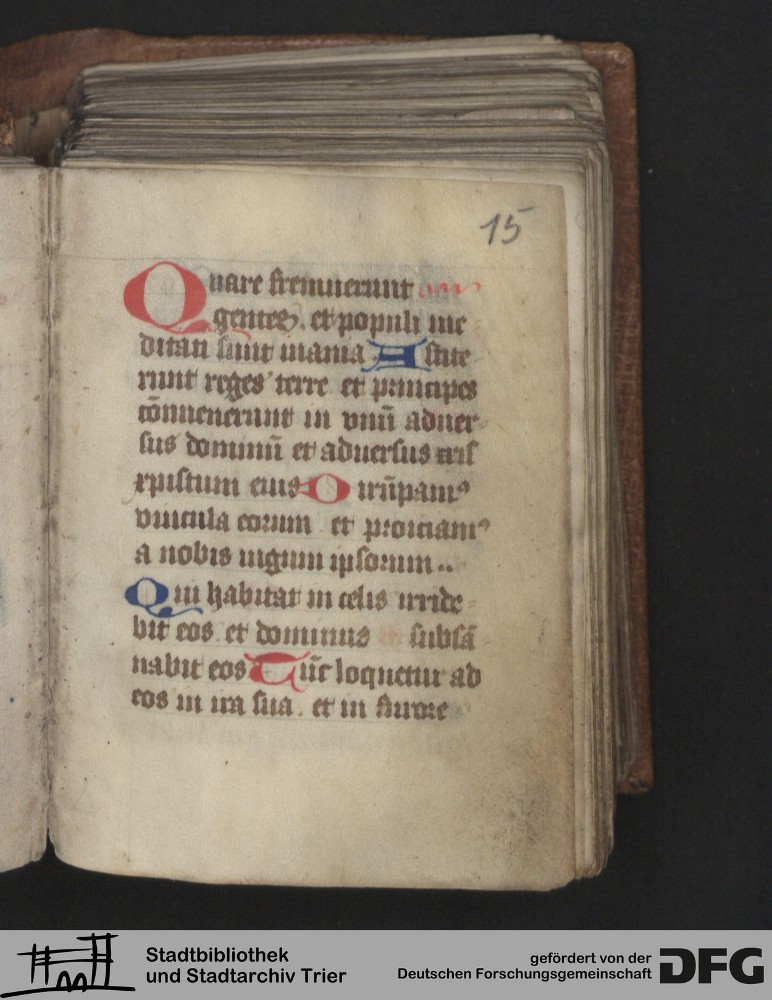 15
Quare fremuerunt
gentes. et populi me
ditati sunt inania Astite
runt reges terre et principes
cōnuenerunt in vnū aduer
sus dominū et aduersus
xpistum eius Dirūpamꝰ
vincula eorum et proiciamꝰ
a nobis iugum ipsorum..
Qui habitat in celis irride
bit eos et dominus subsā
nabit eos Tūc loquetur ad
eos in ira sua. et in furore
Stadtbibliothek
und Stadtarchiv Trier
gefördert von der
Deutschen Forschungsgemeinschaft
DFG